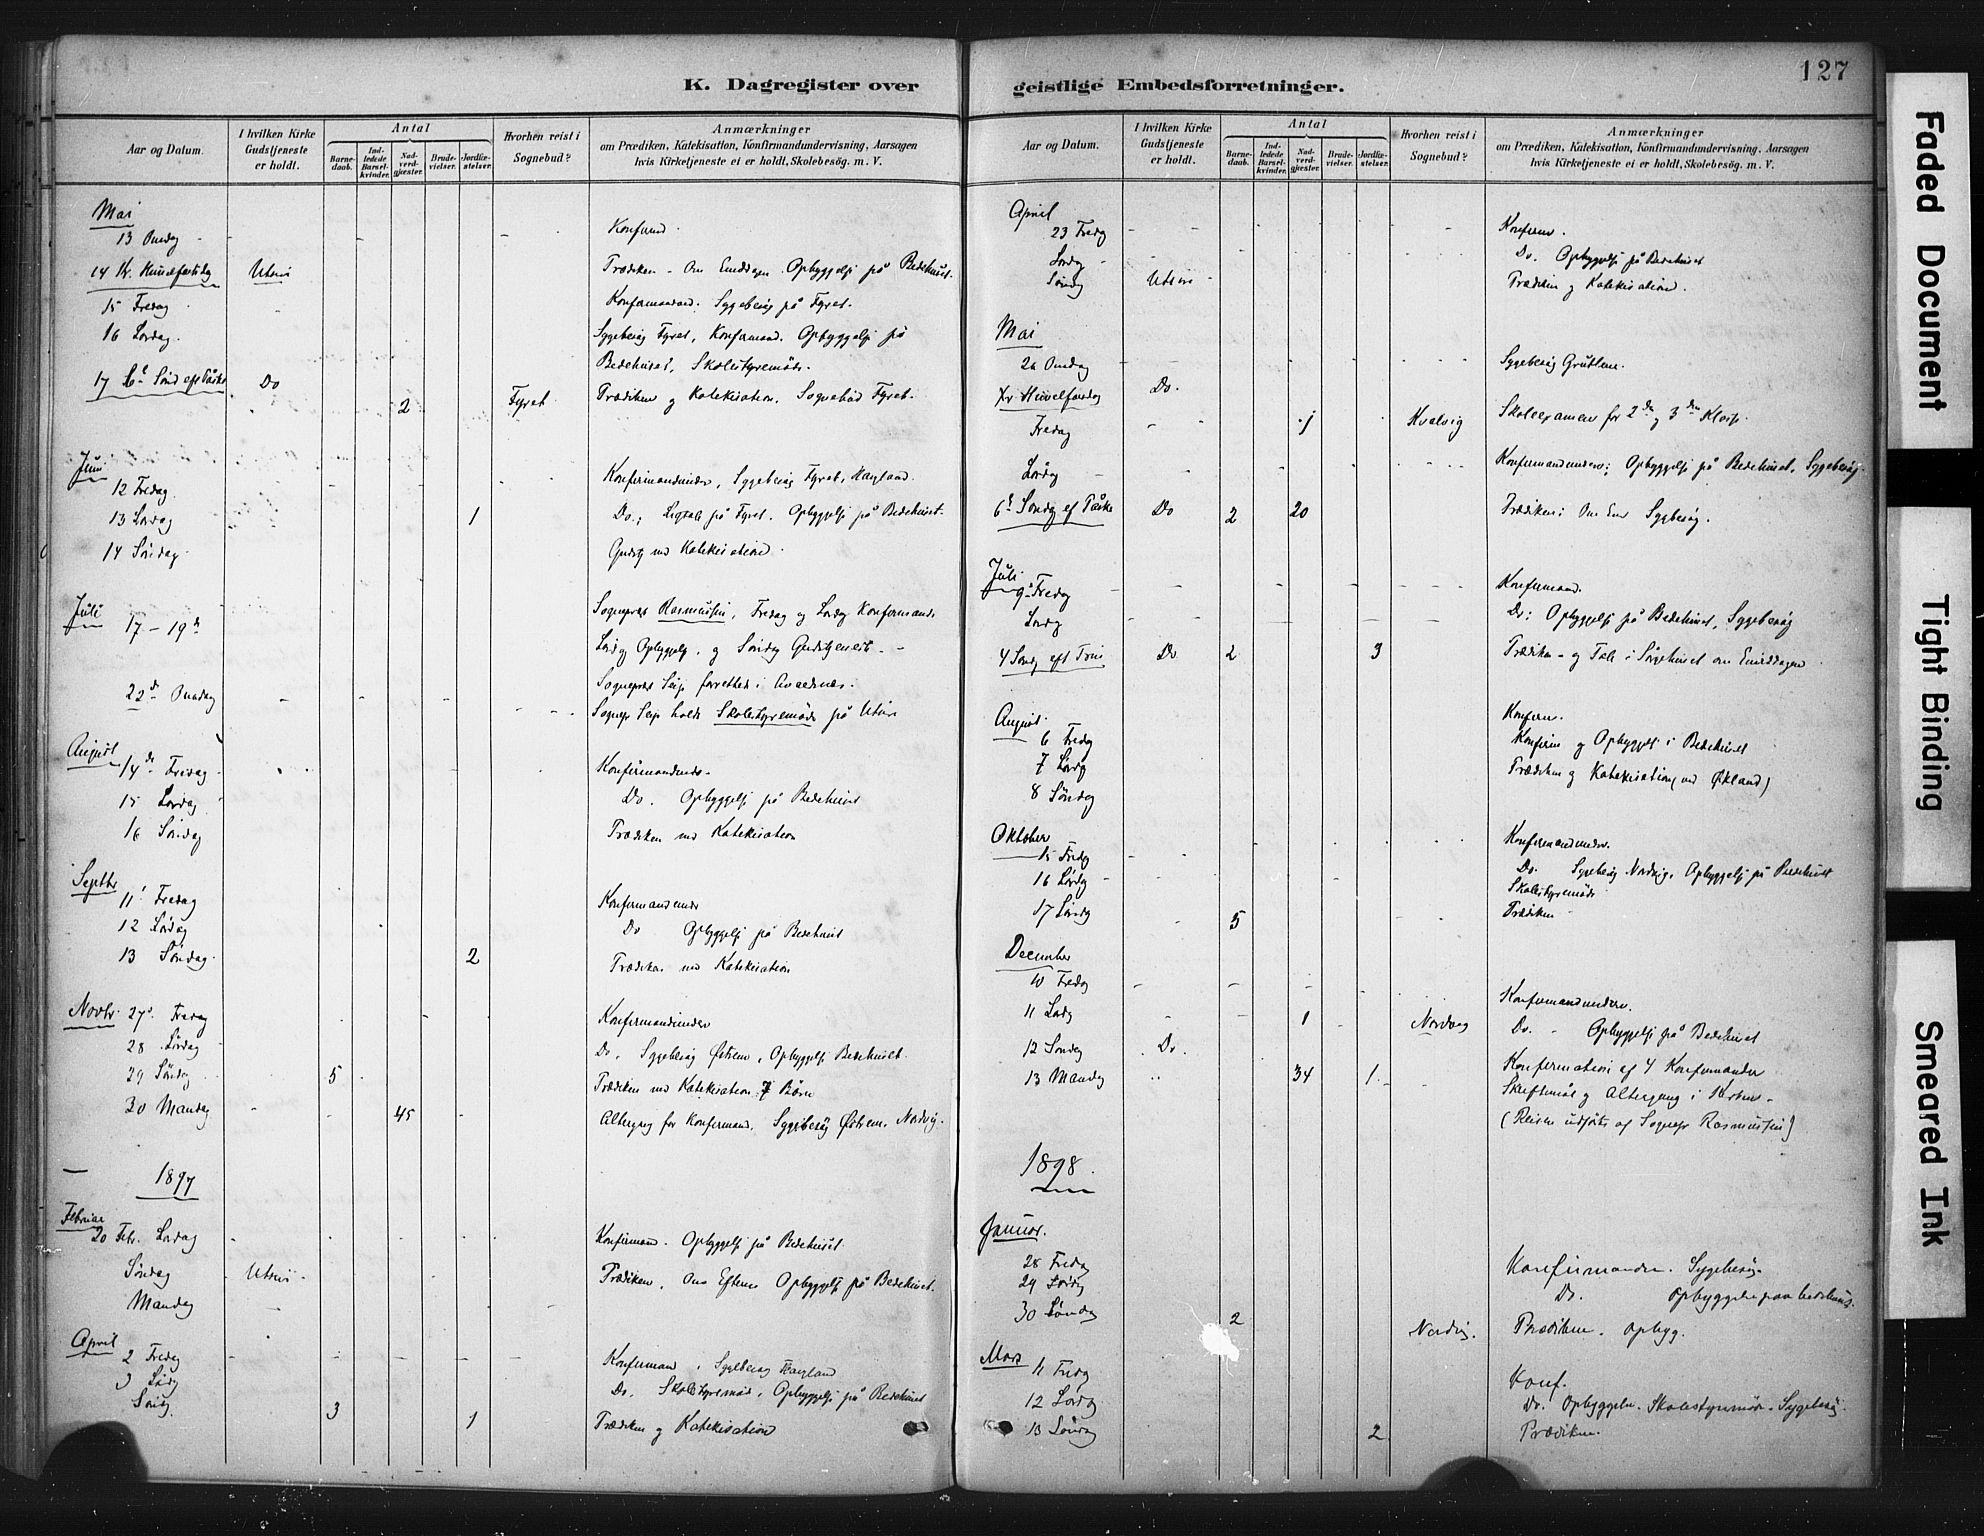 K. Dagregister over
Aar og Datum.
I hvilken Kirke Gudstjeneste er holdt.
Antal
Barnedaab.
Indledede Barselkvinder.
Nadverdgjester.
Brudevielser.
Jordfæstelser.
Hvorhen reist i Sognebud?
Anmærkninger
om Prædiken, Katekisation, Konfirmandundervisning, Aarsagen
hvis Kirketjeneste ei er holdt, Skolebesøg. m. V.
Mai
13 Onsdag Konfirmd.
14 Kr. Himmelfartsdag Utsire Prædiken - Opbyggelse på Bedehuset.
15 Fredag Konfirmand. Sygebesøg på Fyret.
16 Lørdag. Sygebesøg Fyret, Konfirmand. Opbyggelse på
Bedehuset, Skolestyremøde.
17 Sønd eft Påske Do 2 Fyret Prædiken og Katekisation. Sognebud Fyret.
Juni
12 Fredag. Konfirmandunder, Sygebesøg Fyret, Hagland.
13 Lørdag 1 Do.; Ligtale på Fyret. Opbyggelse på Bedehuset.
14 Søndag Gudstj med Katekisation.
Juli
17-19de Sognepræst Rasmussen, Fredag og Lørdag Konfirmand
Lørdag Opbyggelse, og Søndag Gudstjeneste
Sognepræst Seip forrettede i Avaldsnes.
22de Onsdag Sognepr Seip holdt Skolestyremøde på Utsire
August
14de Fredag Konfirmandund.
15 Lørdag Do. Opbyggelse på Bedehuset
16 Søndag Prædiken med Katekisation
Septbr
11 Fredag Konfirmandunder
12 Lørdag Do Opbyggelse på Bedehuset
13 Søndag. 2 Prædiken med Katekisation
Novbr. 27de Fredag Konfirmandunder
28 Lørdag Do, Sygebesøg Østrem, Opbyggelse Bedehuset.
29 Søndag 5 Prædiken med Katekisation 7 Børn
30 Mandag 45 Altergang for Konfirmand, Sygebesøg Østrem, Nordvig.
1897
Februar
20 Febr. Lørdag Konfirmand. Opbyggelse på Bedehuset.
Søndag Utsire Prædiken, Om Efterm Opbyggelse på Bedehuset.
Mandag
April
2 Fredag Konfirmand, Sygebesøg Hagland
3 Lørdg Do. Skolestyremøde, Opbyggelse på Bedehuset
Søndg. 3 1 Prædiken og Katekisation
geistlige Embedsforretninger.
127
Aar og Datum.
I hvilken Kirke Gudstjeneste er holdt.
Antal
Barnedaab.
Indledede Barselkvinder.
Nadverdgjester.
Brudevielser.
Jordfæstelser.
Hvorhen reist i Sognebud?
Anmærkninger
om Prædiken, Katekisation, Konfirmandundervisning, Aarsagen
hvis Kirketjeneste ei er holdt, Skolebesøg. m. V.
April
23 Fredag Konfirm.
Lørdg Do. Opbyggelse på Bedehuset
Søndg Utsire Prædiken og Katekisation.
Mai
26 Onsdag Sygebesøg
Kr Himmelfartsdag Do.
Fredag 1 Kvalvig Skoleexamen for 2den og 3die Klasse.
Lørdag Konfirmandunderv; Opbyggelse på Bedehuset, Sygebesøg.
6te Søndg ef Påske Do 2 20 Prædiken; Om Sygebesøg.
Juli
9de Fredag Konfirmand.
Lørdg Do; Opbyggelse på Bedehuset, Sygebesøg
4 Søndg eft Trin Do 2 3 Prædiken - og Tale i Sørgehuset om Eftermiddagen
August
6 Fredag Konfirm.
7 Lørdg Konfirm og Opbyggelse i Bedehuset
8 Søndag Prædiken og Katekisation (ved Økland)
Oktober
15 Fredag Konfirmandunder.
16 Lørdg Do. Sygebesøg Nordvig, Opbyggelse på Bedehuset
Skolestyremøde
17 Søndg 5 Prædiken
December
10 Fredag Konfirmandunderv.
11 Lørdg 1 Nordvig Do. Opbyggelse på Bedehuset
12 Søndag Do. Konfirmation af 4 Konfirmander
13 Mandag 34 1 Skriftemål og Altergang i Kirken
(Reisen udførtes af Sognepr Rasmussen)
1898.
Januar.
28 Fredag Konfirmander. Sygebesøg.
29 Lørdg Do. Opbyggelse paa bedehus.
30 Søndag 2 Nordvig. Prædiken. Opbyg.
Mars
11 Fredag Konf.
12 Lørdag Do. Opbyggelse. Skolestyremøde. Sygebesøg.
13 Søndag 2 Prædiken.
Faded Document
Tight Binding
Smeared Ink